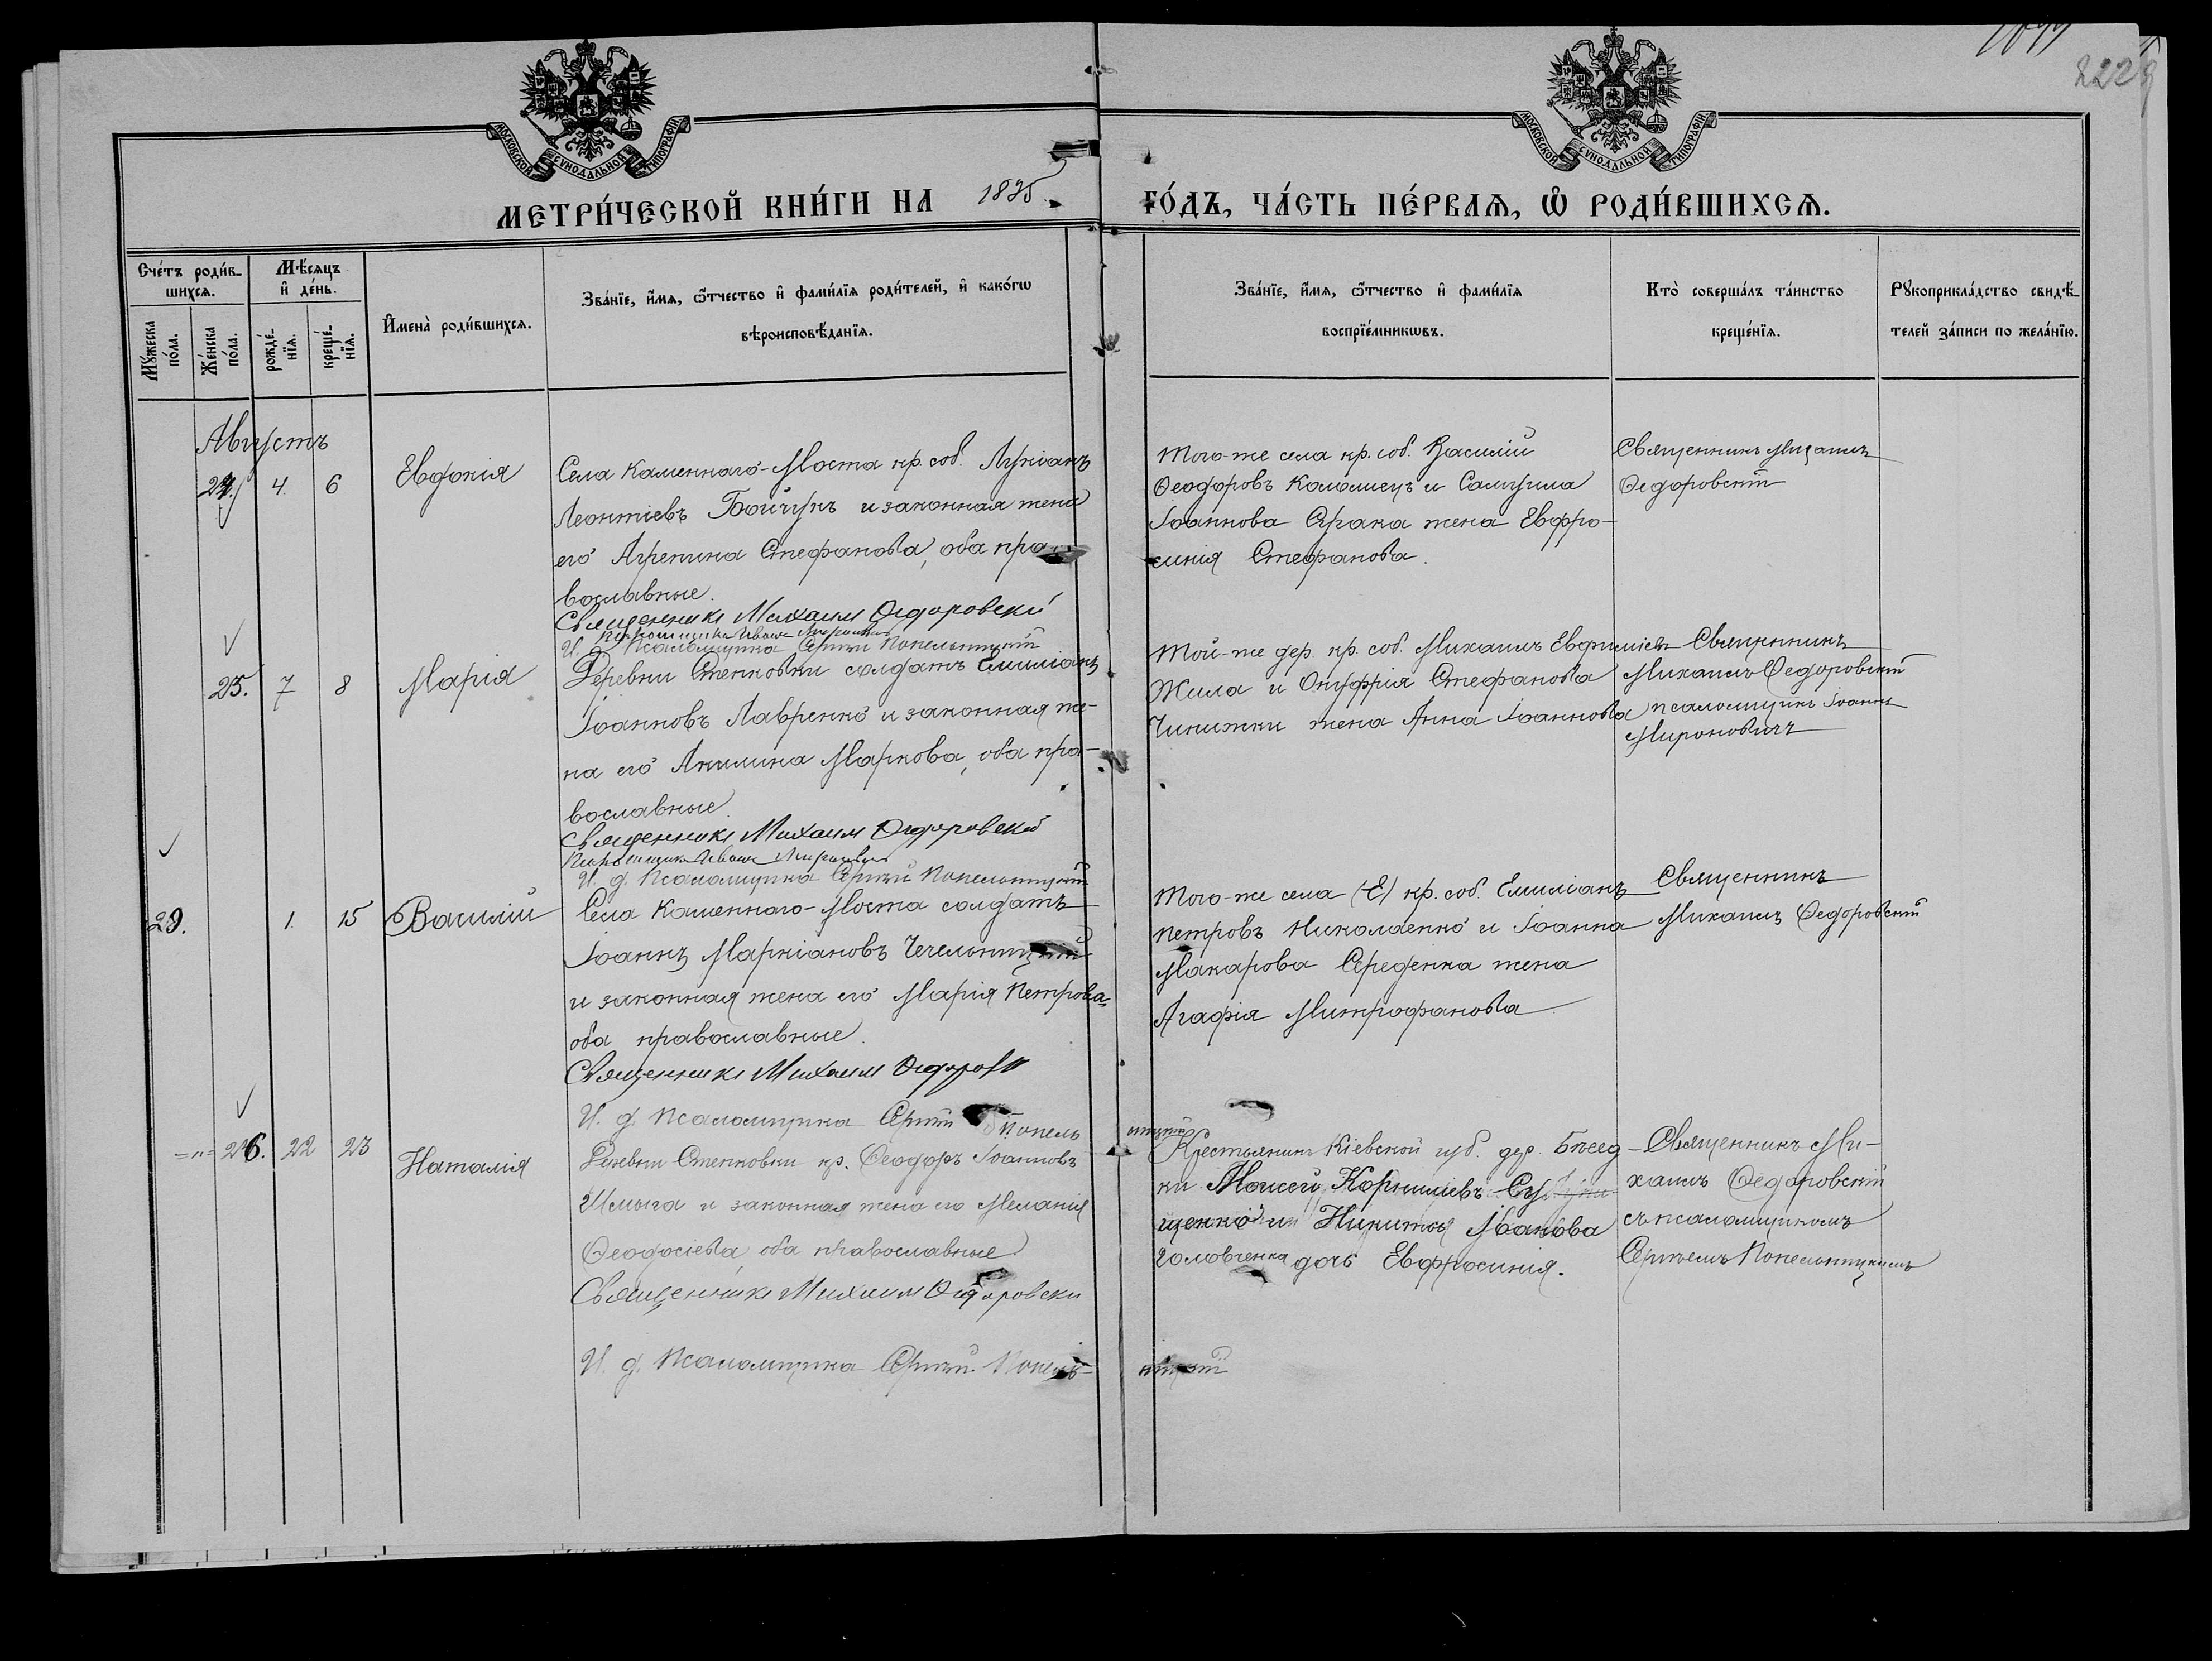 МОСКОВСКОЙ СѴНОДАЛЬНОЙ ТИПОГРАФІИ
МОСКОВСКОЙ СѴНОДАЛЬНОЙ ТИПОГРАФІИ
МЕТРИ́ЧЕСКОЙ КНИ́ГИ НА 1895 ГО́ДЪ, ЧА́СТЬ ПЕ́РВАѦ, Ѡ҆ РОДИ́ВШИХСѦ.
Сче́тъ роди́в-
шихсѧ.
Мꙋ́жеска
по́ла.
Же́нска
по́ла.
Мѣ́сѧцъ
и҆ де́нь.
рожде́-
нїѧ.
креще́-
нїѧ.
И҆мена̀ роди́вшихсѧ.
Зва́нїе, и҆́мѧ, ѻ҆́тчество и҆ фами́лїѧ роди́телей, и҆ како́гѡ
вѣроисповѣ́данїѧ.
Зва́нїе, и҆́мѧ, ѻ҆́тчество и҆ фами́лїѧ
воспрїе́мникѡвъ.
Кто̀ соверша́лъ та́инство
креще́нїѧ.
Рꙋкоприкла́дство свидѣ́-
телей за́писи по жела́нїю.
Августъ
24. 4 6 Евдокія
Села Каменнаго-Моста кр. соб. Лукіанъ
Леонтіевъ Бойчукъ и законная жена
его Агрепина Стефанова, оба пра-
вославные.
Священникъ Михаилъ Ѳедоровскій
Псаломщикъ Иванъ Мироновичъ
И. д. Псаломщика Сергій Попельницкій
Того-же села кр. соб. Василій
Ѳеодоровъ Коломіецъ и Самуила
Іоаннова Драка жена Евфро-
синія Стефанова.
Священникъ Михаилъ
Ѳедоровскій
25. 7 8 Марія
Деревни Степковки солдатъ Емиліанъ
Іоанновъ Лавренко и законная же-
на его Акилина Маркова, оба пра-
вославные.
Священникъ Михаилъ Ѳедоровскій
Псаломщикъ Иванъ Мироновичъ
И. д. Псаломщика Сергій Попельницкій
Той-же дер. кр. соб. Михаилъ Евфиміевъ
Жила и Онуфрія Стефанова
Чижики жена Анна Іоаннова
Священникъ
Михаилъ Ѳедоровскій
псаломщикъ Іоаннъ
Мироновичъ
29. 1 15 Василій
Села Каменнаго-Моста солдатъ
Іоаннъ Маркіановъ Чечельницкій
и законная жена его Марія Петрова
оба православные.
Священникъ Михаилъ Ѳедоров
И. д. Псаломщика Сергій Попель
ницкій
Того-же села (Е) кр. соб. Емиліанъ
Петровъ Николаенко и Іоанна
Макарова Середенка жена
Агафія Митрофанова
Священникъ
Михаилъ Ѳедоровскій
-"- 26. 22 23 Наталія
Деревни Степковки кр. Ѳеодоръ Іоанновъ
и законная жена его Меланія
Ѳеодосіева, оба православные
Священникъ Михаилъ Ѳедоровскій
И. д. Псаломщика Сергій Попель-
ницкій
Крестьянинъ Кіевской губ. дер. Бесед-
ки Моисей Корниліевъ
щенко и Никиты Іоанова
Головченка дочь Евфросинія.
Священникъ Ми-
хаилъ Ѳедоровскій
съ псаломщикомъ
Сергѣемъ Попельницкимъ